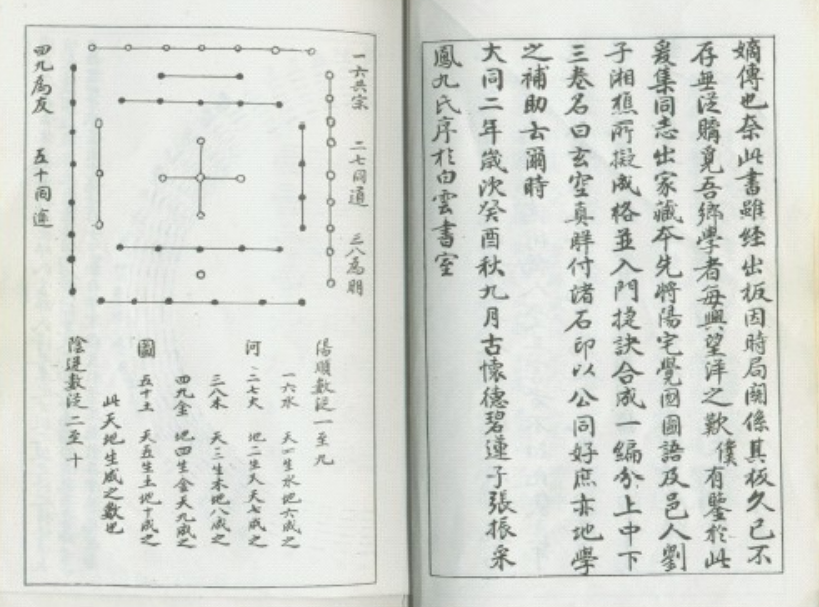 嫡傳也奈此書雖經出板因時局關係其板久已不
存無從購覓吾鄉學者每興望洋之歎僕有鑒於此
爰集同志出家藏本先將陽宅覺圖圖語及邑人劉
子湘樵所擬成格並入門捷訣合成一編分上中下
三卷名曰玄空真詳付諸石印以公同好庶亦地學
之補助云爾時
大同二年歲次癸酉秋九月古懷德碧蓮子張振采
鳳九氏序於白雲書室
一六共宗 二七同道 三八為朋
四九為友 五十同途
陽順數從一至九
一六水 天一生水地六成之
河 二七火 地二生火天七成之
三八木 天三生木地八成之
四九金 地四生金天九成之
圖 五十土 天五生土地十成之
此天地生成之數也
陰逆數從二至十